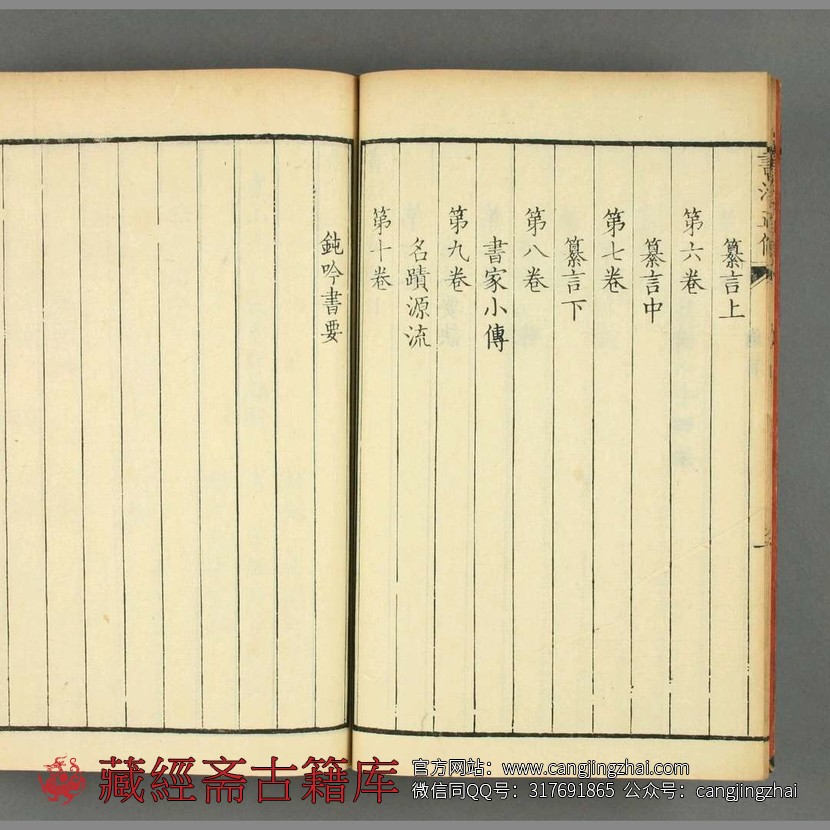 書法正傳
纂言上
第六卷
纂言中
第七卷
纂言下
第八卷
書家小傳
第九卷
名蹟源流
第十卷
鈍吟書要
藏經斋古籍库
官方网站：www.cangjingzhai.com
微信同QQ号：317691865 公众号：cangjingzhai